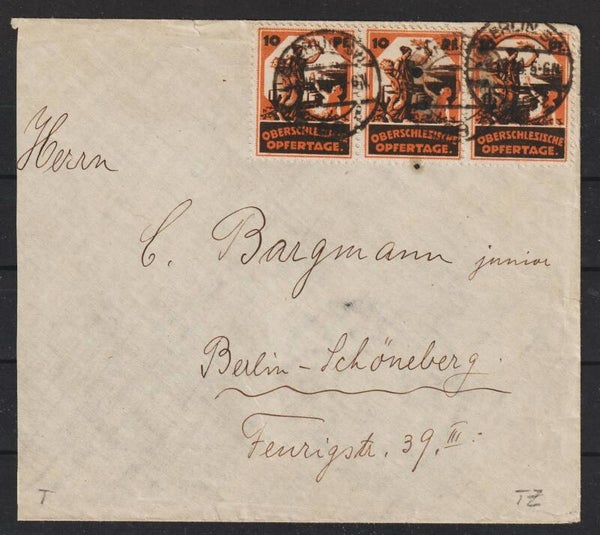 10 Pf. 10 Pf. 10 Pf.
OBERSCHLESISCHE OBERSCHLESISCHE OBERSCHLESISCHE
OPFERTAGE. OPFERTAGE. OPFERTAGE.
Herrn
C. Bargmann junior
Berlin-Schöneberg.
Fenrigstr. 39. III.
T TZ